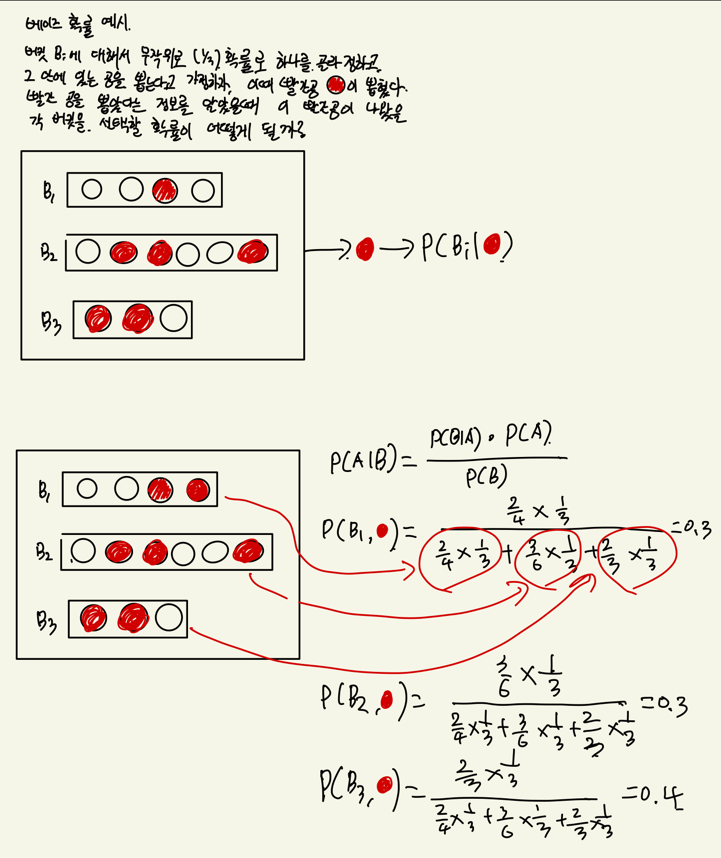 베이즈 확률 예시.
버킷 Bi에 대해서 무작위로 (1/3) 확률로 하나를 골라 정하고
그 안에 있는 공을 뽑는다고 가정하자, 이때 빨간공 이 뽑혔다.
빨간 공을 뽑았다는 정보를 알았을때 이 빨간공이 나왔을
각 버킷을 선택할 확률이 어떻게 될까?
B₁
B₂
B₃
P(Bi| )
P(A|B) = P(B|A) • P(A) / P(B)
B₁
B₂
B₃
P(B₁, ) = 2/4 × 1/3 / 2/4 × 1/3 + 3/6 × 1/3 + 2/3 × 1/3 = 0.3
P(B₂, ) = 3/6 × 1/3 / 2/4 × 1/3 + 3/6 × 1/3 + 2/3 × 1/3 = 0.3
P(B₃, ) = 2/3 × 1/3 / 2/4 × 1/3 + 3/6 × 1/3 + 2/3 × 1/3 = 0.4